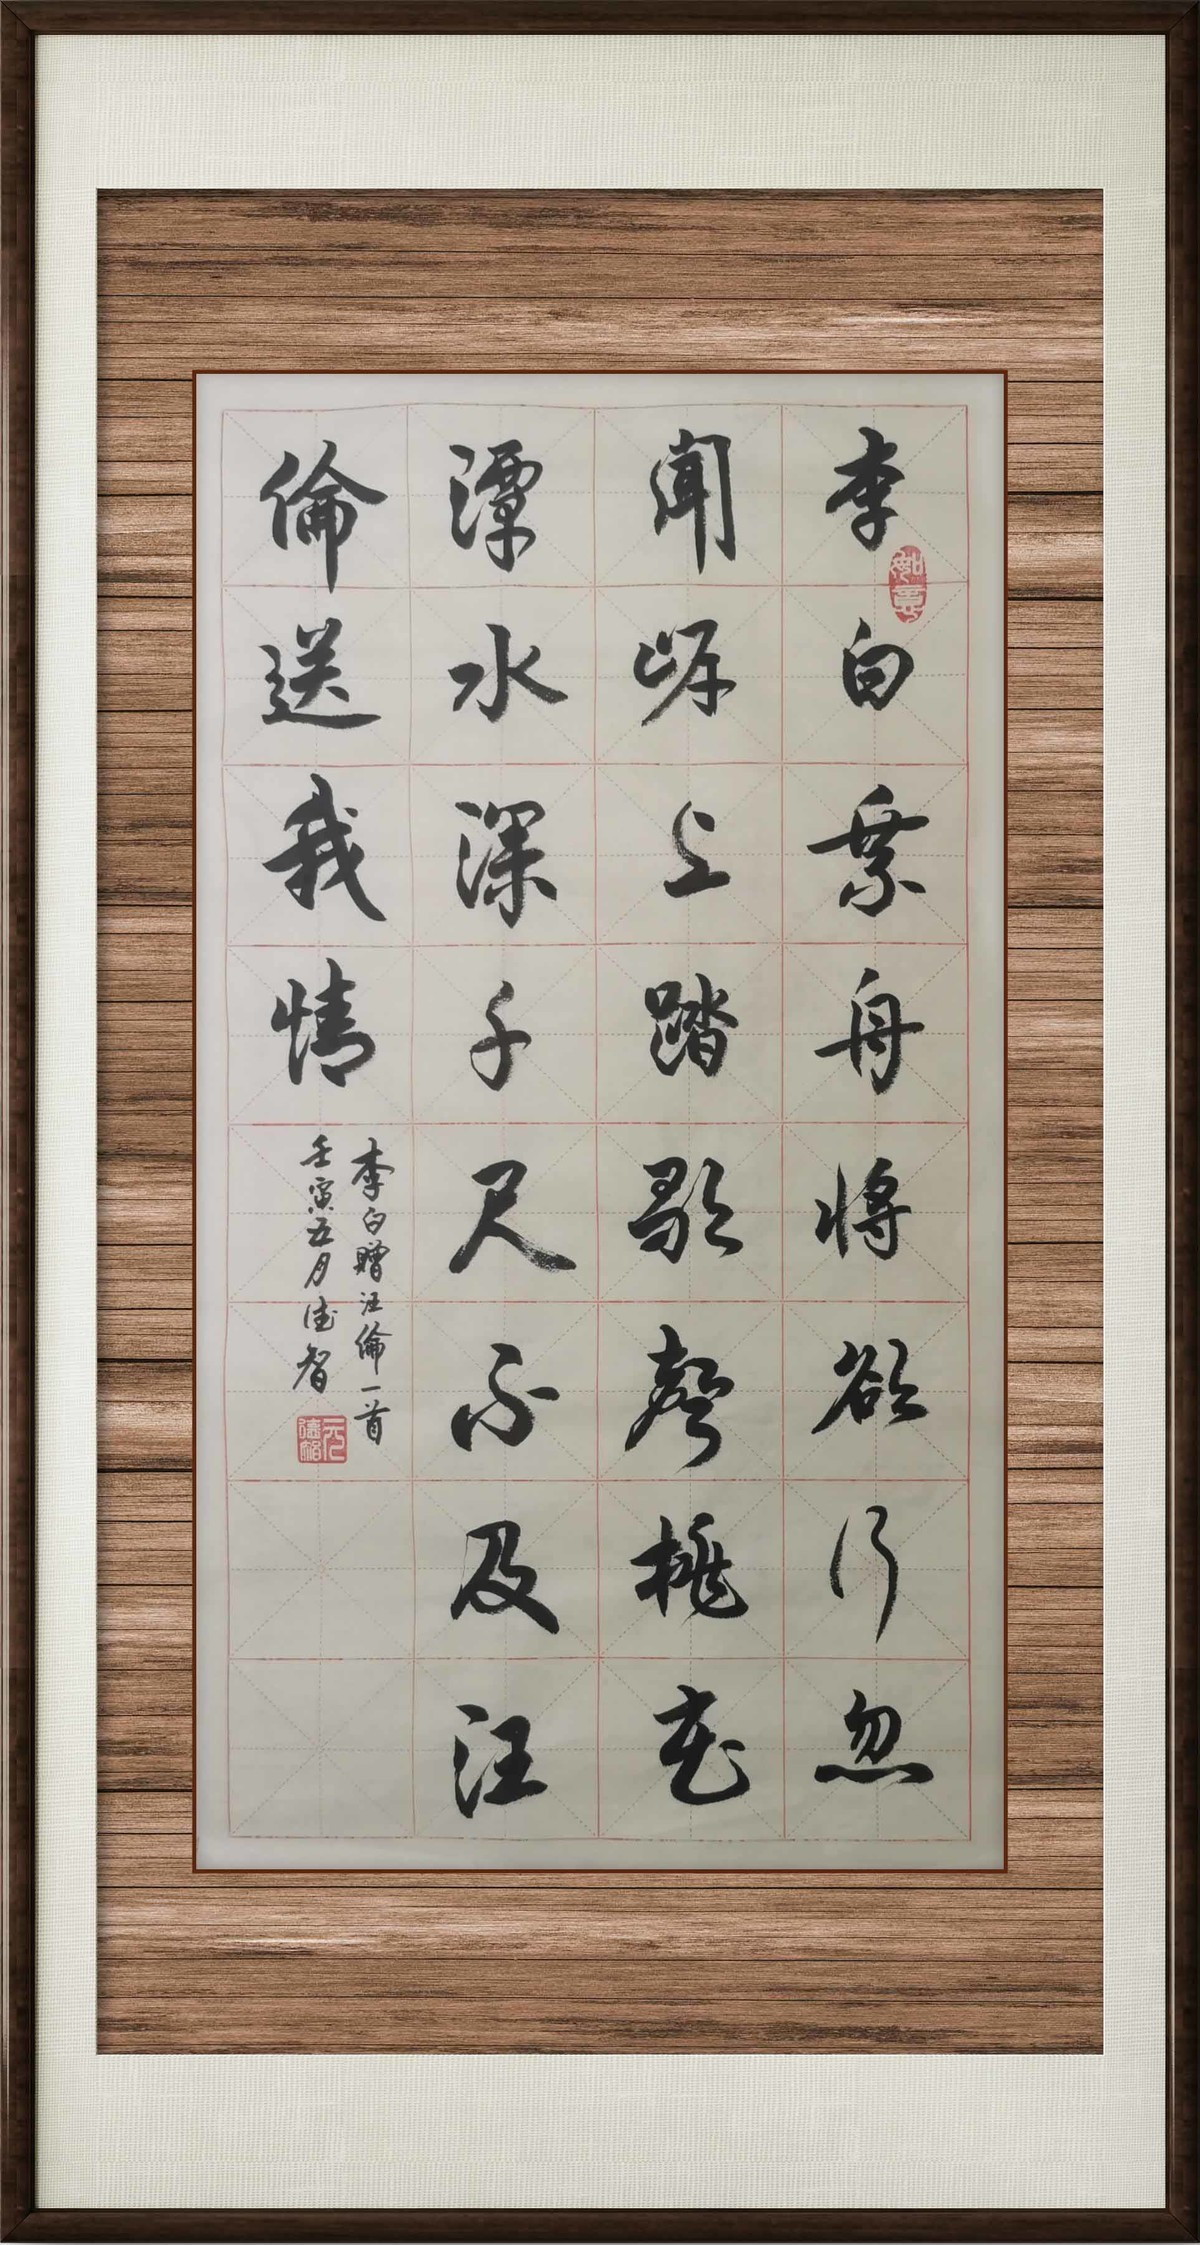 李白乘舟將欲行忽
聞岸上踏歌聲桃花
潭水深千尺不及汪
倫送我情
李白贈汪倫一首
壬寅五月德智
如意